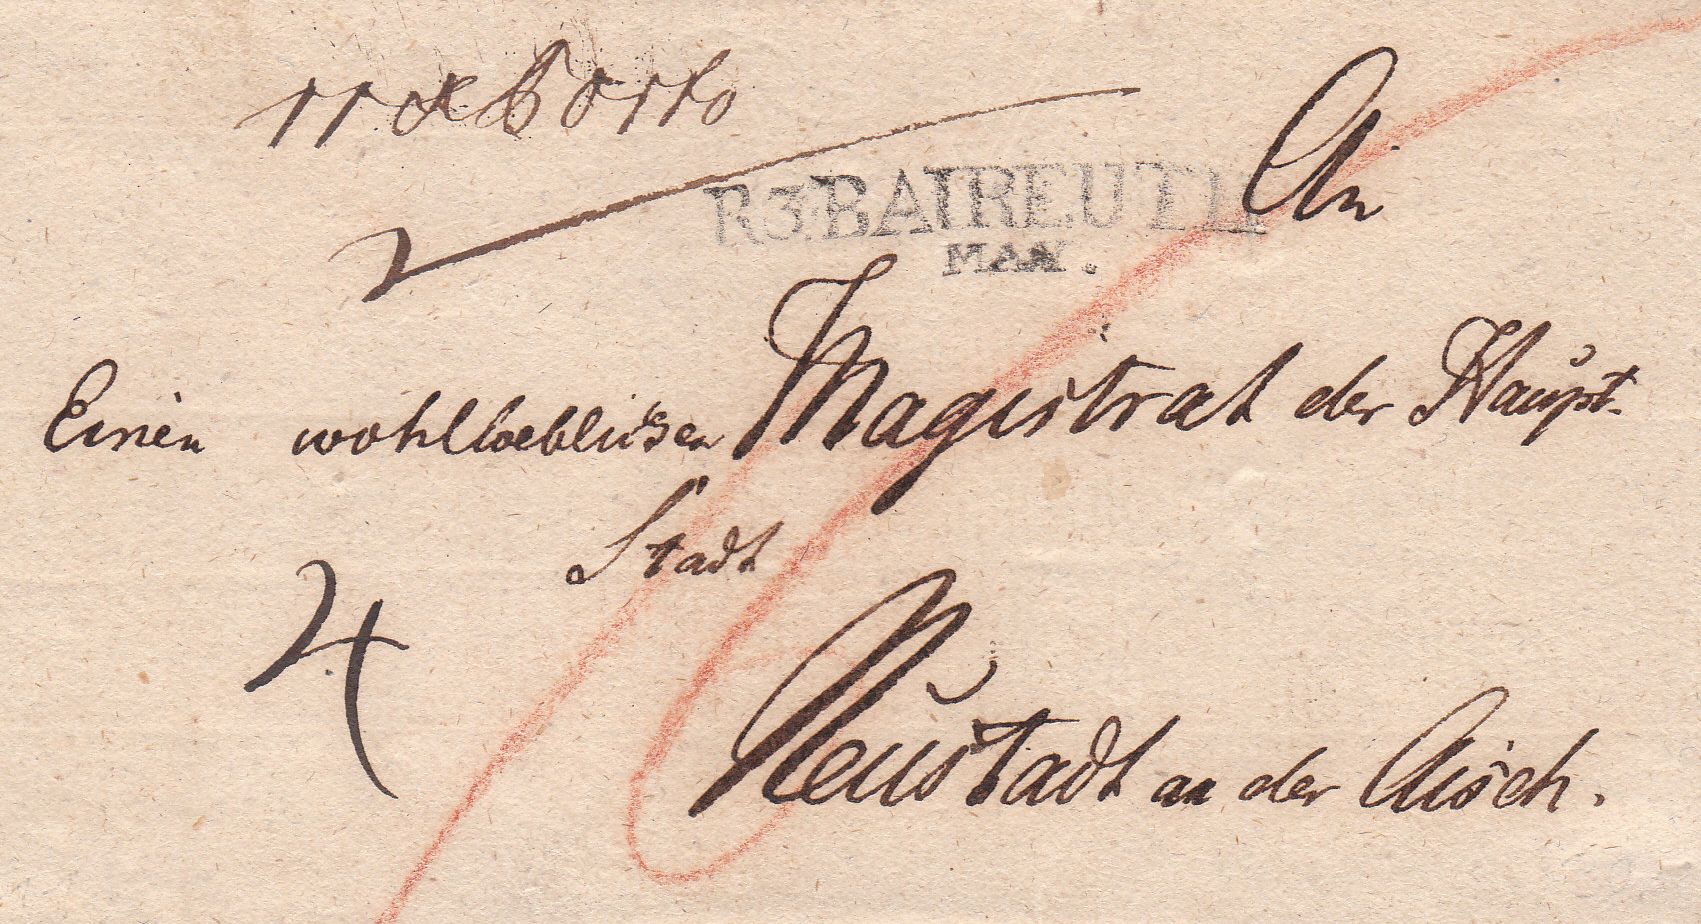 11 x Porto
R.3.BAIREUTH
MAY.
An
Einen wohlloeblichen Magistrat der Haupt-
Stadt
4
Neustadt an der Aisch.